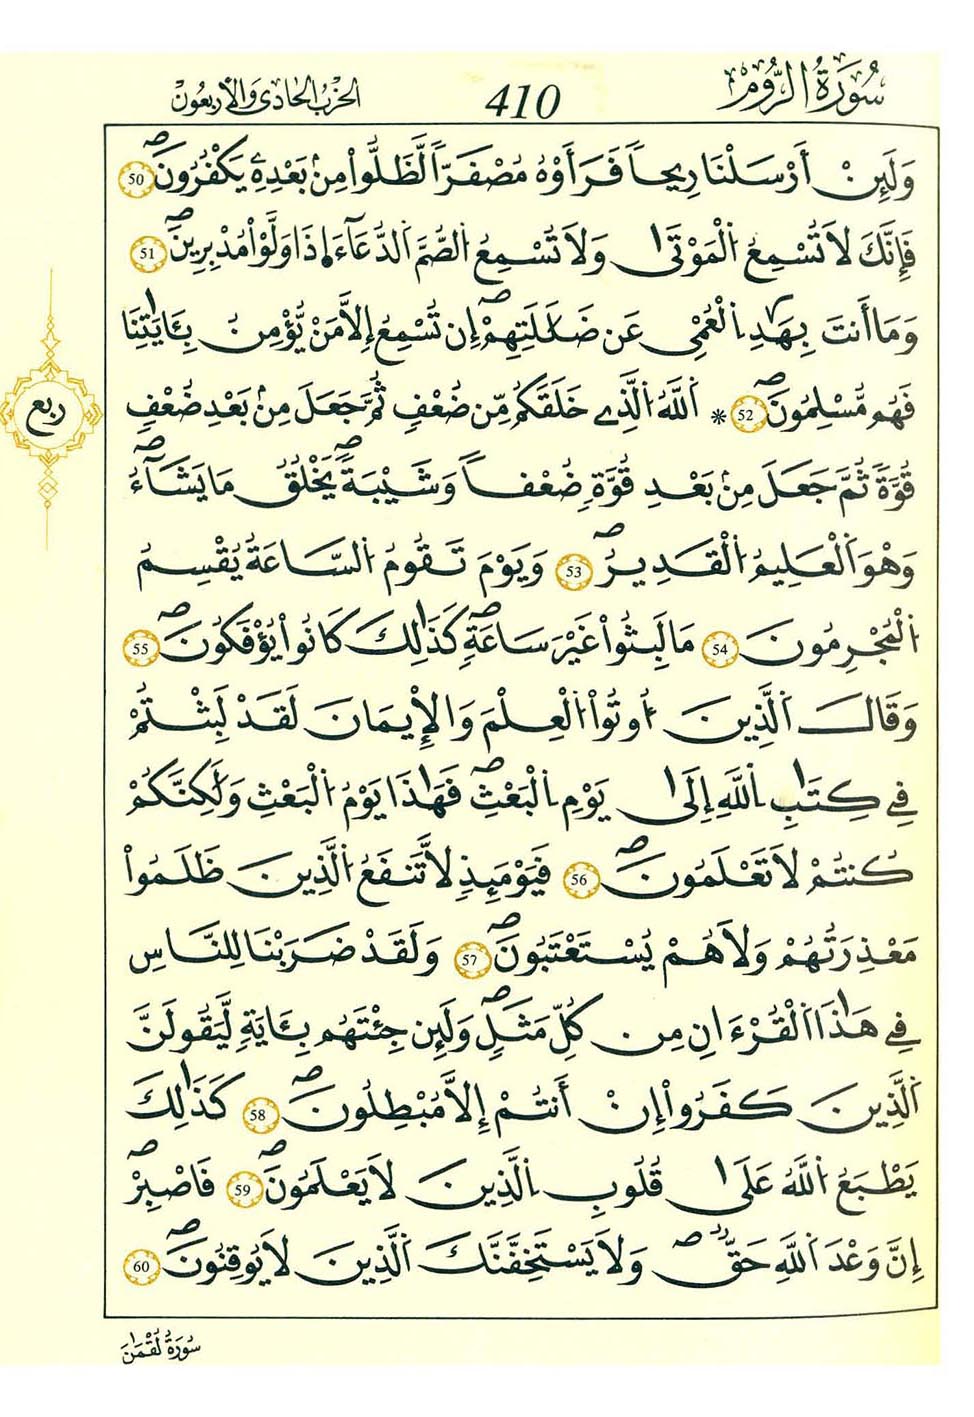 سُورَةُ الرُّومِ 410 الحِزْبُ الحَادِي وَالأَرْبَعُونَ
وَلَئِنْ أَرْسَلْنَا رِيحاً فَرَأَوْهُ مُصْفَرّاً لَّظَلُّواْ مِنۢ بَعْدِهِۦ يَكْفُرُونَۖ 50
فَإِنَّكَ لَا تُسْمِعُ اُ۬لْمَوْتَىٰ وَلَا تُسْمِعُ اُ۬لصُّمَّ اَ۬لدُّعَآءَ اِ۪ذَا وَلَّوْاْ مُدْبِرِينَۖ 51
وَمَا أَنتَ بِهَٰدِ اِ۬لْعُمْيِ عَن ضَلَٰلَتِهِمْۖ إِن تُسْمِعُ إِلَّا مَنْ يُّؤْمِنُ بِـَٔايَٰتِنَا
فَهُم مُّسْلِمُونَۖ 52 * اَ۬للَّهُ اُ۬لَّذِے خَلَقَكُم مِّن ضُعْفٖ ثُمَّ جَعَلَ مِنۢ بَعْدِ ضُعْفٖ
قُوَّةٗ ثُمَّ جَعَلَ مِنۢ بَعْدِ قُوَّةٖ ضُعْفاً وَشَيْبَةٗۖ يَخْلُقُ مَا يَشَآءُۖ
وَهُوَ اَ۬لْعَلِيمُ اُ۬لْقَدِيرُۖ 53 وَيَوْمَ تَقُومُ اُ۬لسَّاعَةُ يُقْسِمُ
اُ۬لْمُجْرِمُونَ 54 مَا لَبِثُواْ غَيْرَ سَاعَةٖۖ كَذَٰلِكَ كَانُواْ يُؤْفَكُونَۖ 55
وَقَالَ اَ۬لَّذِينَ أُوتُواْ اُ۬لْعِلْمَ وَالْإِيمَٰنَ لَقَدْ لَبِثْتُمْ
فِے كِتَٰبِ اِ۬للَّهِ إِلَىٰ يَوْمِ اِ۬لْبَعْثِۖ فَهَٰذَا يَوْمُ اُ۬لْبَعْثِ وَلَٰكِنَّكُمْ
كُنتُمْ لَا تَعْلَمُونَۖ 56 فَيَوْمَئِذٖ لَّا تَنفَعُ اُ۬لَّذِينَ ظَلَمُواْ
مَعْذِرَتُهُمْ وَلَا هُمْ يُسْتَعْتَبُونَۖ 57 وَلَقَدْ ضَرَبْنَا لِلنَّاسِ
فِے هَٰذَا اَ۬لْقُرْءَانِ مِن كُلِّ مَثَلٖۖ وَلَئِن جِئْتَهُم بِـَٔايَةٖ لَّيَقُولَنَّ
اَ۬لَّذِينَ كَفَرُواْ إِنْ أَنتُمْ إِلَّا مُبْطِلُونَۖ 58 كَذَٰلِكَ
يَطْبَعُ اُ۬للَّهُ عَلَىٰ قُلُوبِ اِ۬لَّذِينَ لَا يَعْلَمُونَۖ 59 فَاصْبِرْۖ
إِنَّ وَعْدَ اَ۬للَّهِ حَقّٞۖ وَلَا يَسْتَخِفَّنَّكَ اَ۬لَّذِينَ لَا يُوقِنُونَۖ 60
ربع
سُورَةُ لُقْمَٰنَ